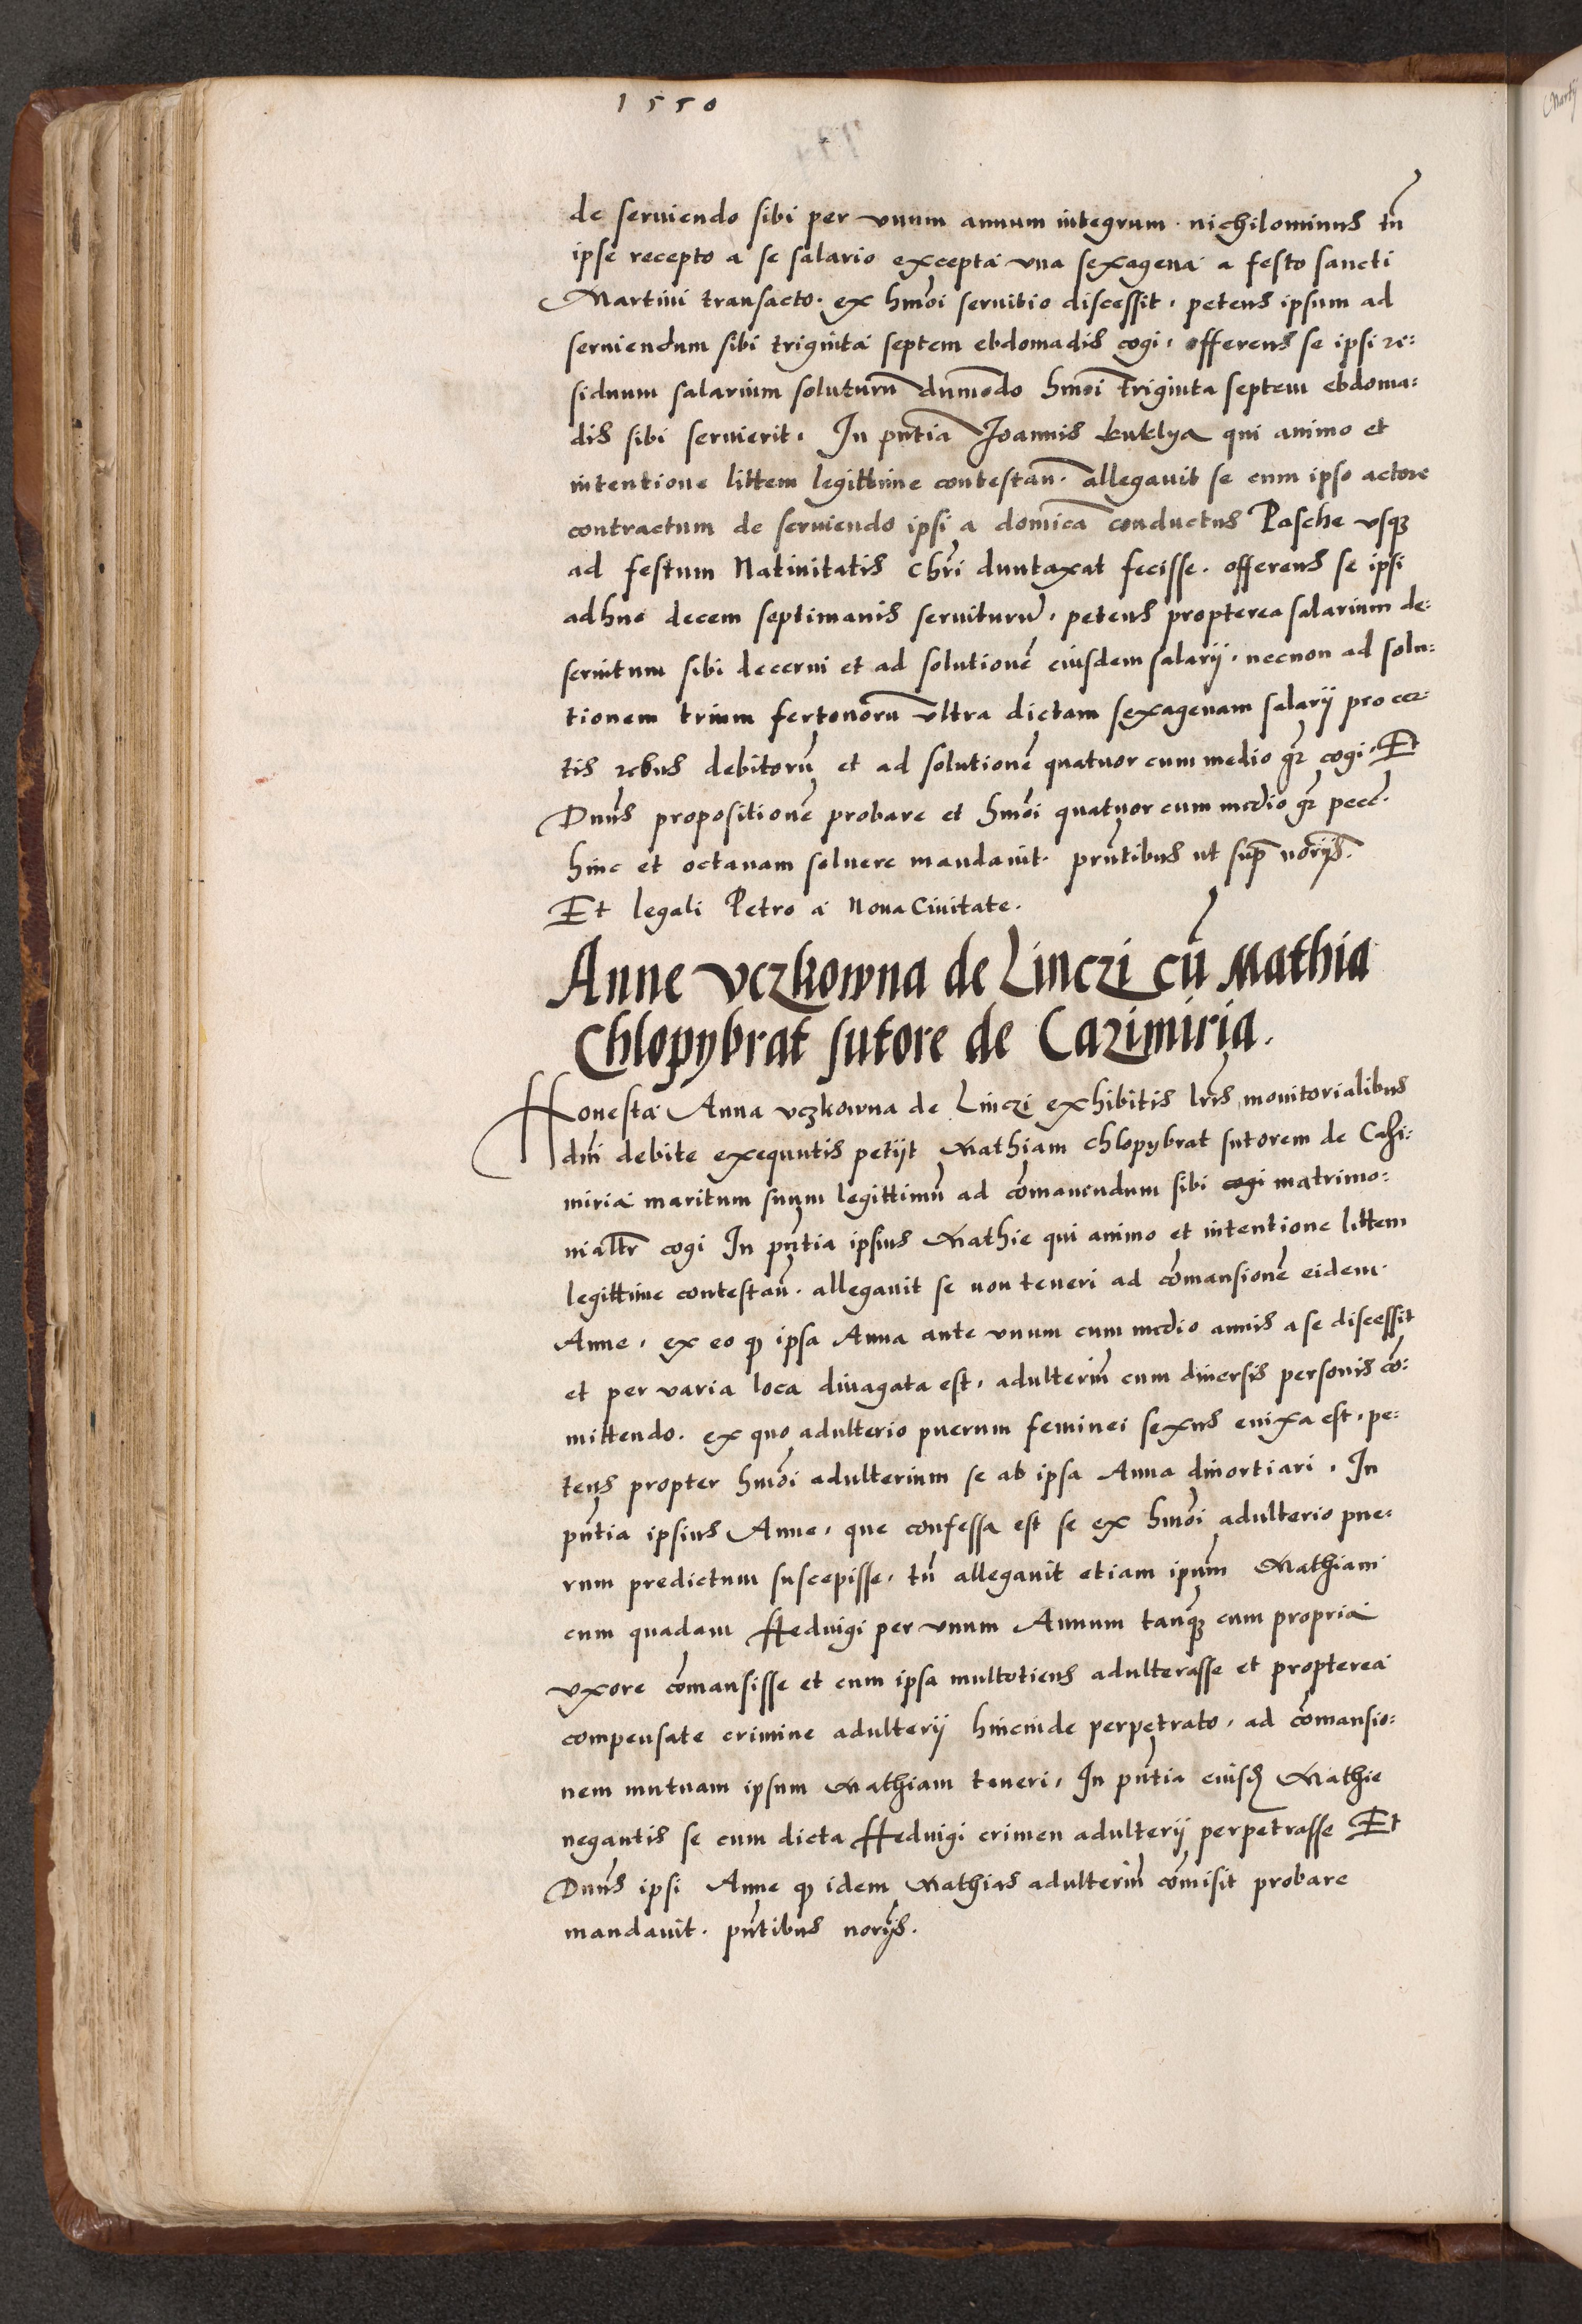 1550
de seruiendo sibi per vnum annum integrum. nichilominus tñ
ipse recepto a se salario excepta vna sexagena a festo sancti
Martini transacto. ex hmōi seruitio discessit, petens ipsum ad
seruiendum sibi triginta septem ebdomadis cogi, offerens se ipsi re=
siduum salarium soluturū dumōdo hmōi triginta septem ebdoma=
dis sibi seruierit. In pñtia Joannis kuklya qui animo et
intentione littem legittime contestañ. allegauit se cum ipso actore
contractum de seruiendo ipsi a domīca conductus Pasche vsqꝫ
ad festum Natiuitatis Chrī duntaxat fecisse. offerens se ipsi
adhuc decem septimanis seruiturū, petens propterea salarium de=
seruitum sibi decerni et ad solutionē eiusdem salarij, necnon ad solu=
tionem trium fertonorū vltra dictam sexagenam salarij pro cer=
tis rebus debitorū et ad solutionē quatuor cum medio gr̄ cogi, Et
Dnūs propositionē probare et hmōi quatuor cum medio gr̄ pecc̄.
hinc et octauam soluere mandauit. pn̄tibus ut sup̄ nor̄ijs.
Et legali Petro a Noua Ciuitate.
Anne vczkowna de Linczi cū Mathia
Chlopybrat sutore de Cazimiria.
Honesta Anna vczkowna de Linczi exhibitis lr̄is monitorialibus
dnī debite exequutis petijt Mathiam chlopybrat sutorem de Cazi=
miria maritum suum legittimū ad cōmanendum sibi cogi matrimo=
nialtr̄ cogi In pñtia ipsius Mathie qui animo et intentione littem
legittime contestañ. allegauit se non teneri ad cōmansionē eidem
Anne, ex eo qꝫ ipsa Anna ante vnum cum medio annis a se discessit
et per varia loca diuagata est, adulteriū cum diuersis personis cō=
mittendo. ex quo adulterio puerum feminei sexus enixa est, pe=
tens propter hmōi adulterium se ab ipsa Anna diuortiari. In
pñtia ipsius Anne, que confessa est se ex hmōi adulterio pue=
rum predictum suscepisse, tñ allegauit etiam ipūm Mathiam
cum quadam Heduigi per vnum Annum tanqꝫ cum propria
vxore cōmansisse et cum ipsa multotiens adulterasse et propterea
compensate crimine adulterij hincinde perpetrato, ad cōmansio=
nem mutuam ipsum Mathiam teneri, In pñtia eiusd Mathie
negantis se cum dicta Heduigi crimen adulterij perpetrasse Et
Dnūs ipsi Anne qꝫ idem Mathias adulteriū cōmisit probare
mandauit. pñtibus nor̄ijs.